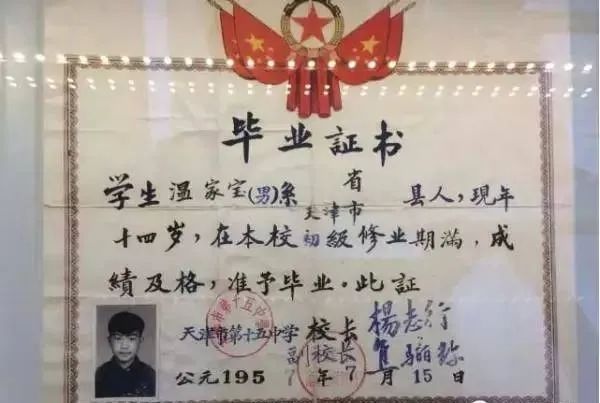 毕业証书
学生温家宝(男)系 省 县人,現年
天津市
十四岁,在本校初級修业期滿,成
績及格,准予毕业。此証
天津市第十五中学 校长 楊志行
副校长
公元1957年7月15日